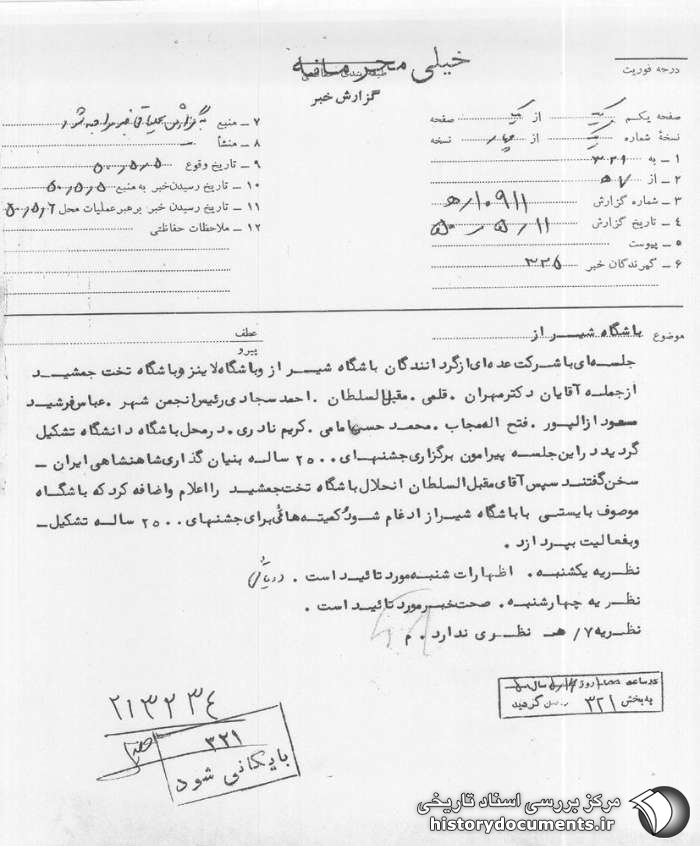 خیلی محرمانه
طبقه بندی حفاظتی
درجه فوریت
گزارش خبر
صفحه یکم یک از یک صفحه
نسخهٔ شماره یک از چهار نسخه
۱ ـ به ۳۲۱
۲ ـ از ۷ ه‍
۳ ـ شماره گزارش ۱۰۹۱۱/ه‍
۴ ـ تاریخ گزارش ۱۱/۵/۵۰
۵ ـ پیوست
۶ ـ گیرندگان خبر ۳۲۵
۷ ـ منبع به گزارش عملیاتی خبر مراجعه شود
۸ ـ منشأ
۹ ـ تاریخ وقوع ۵/۵/۵۰
۱۰ ـ تاریخ رسیدن خبر به منبع ۵/۵/۵۰
۱۱ ـ تاریخ رسیدن خبر برهبر عملیات محل ۶/۵/۵۰
۱۲ ـ ملاحظات حفاظتی
موضوع باشگاه شیراز
عطف
پیرو
جلسه‌ای باشرکت عده‌ای ازگردانندگان باشگاه شیراز وباشگاه لاینز وباشگاه تخت جمشید
ازجمله آقایان دکترمهران . قلمی . مقبل السلطان . احمد سجادی رئیس انجمن شهر . عباس فرشید
مسعود ازالپور . فتح اله مجاب . محمد حسن امامی . کریم نادری . درمحل باشگاه دانشگاه تشکیل
گردید دراین جلسه پیرامون برگزاری جشنهای ۲۵۰۰ ساله بنیان گذاری شاهنشاهی ایران ـ
سخن گفتند سپس آقای مقبل السلطان انحلال باشگاه تخت جمشید را اعلام واضافه کرد که باشگاه
موصوف بایستی باباشگاه شیراز ادغام شود و کمیته‌هائی برای جشنهای ۲۵۰۰ ساله تشکیل ـ
وبفعالیت بپردازد .
نظریه یکشنبه . اظهارات شنبه مورد تائید است .
نظریه چهارشنبه . صحت خبر مورد تائید است .
نظریه ۷/ه‍ نظری ندارد . م
در ساعت روز سال
به بخش ۳۲۱ گردید
۲۱۳۲۳۴
۳۲۱
بایگانی شود
مرکز بررسی اسناد تاریخی
historydocuments.ir